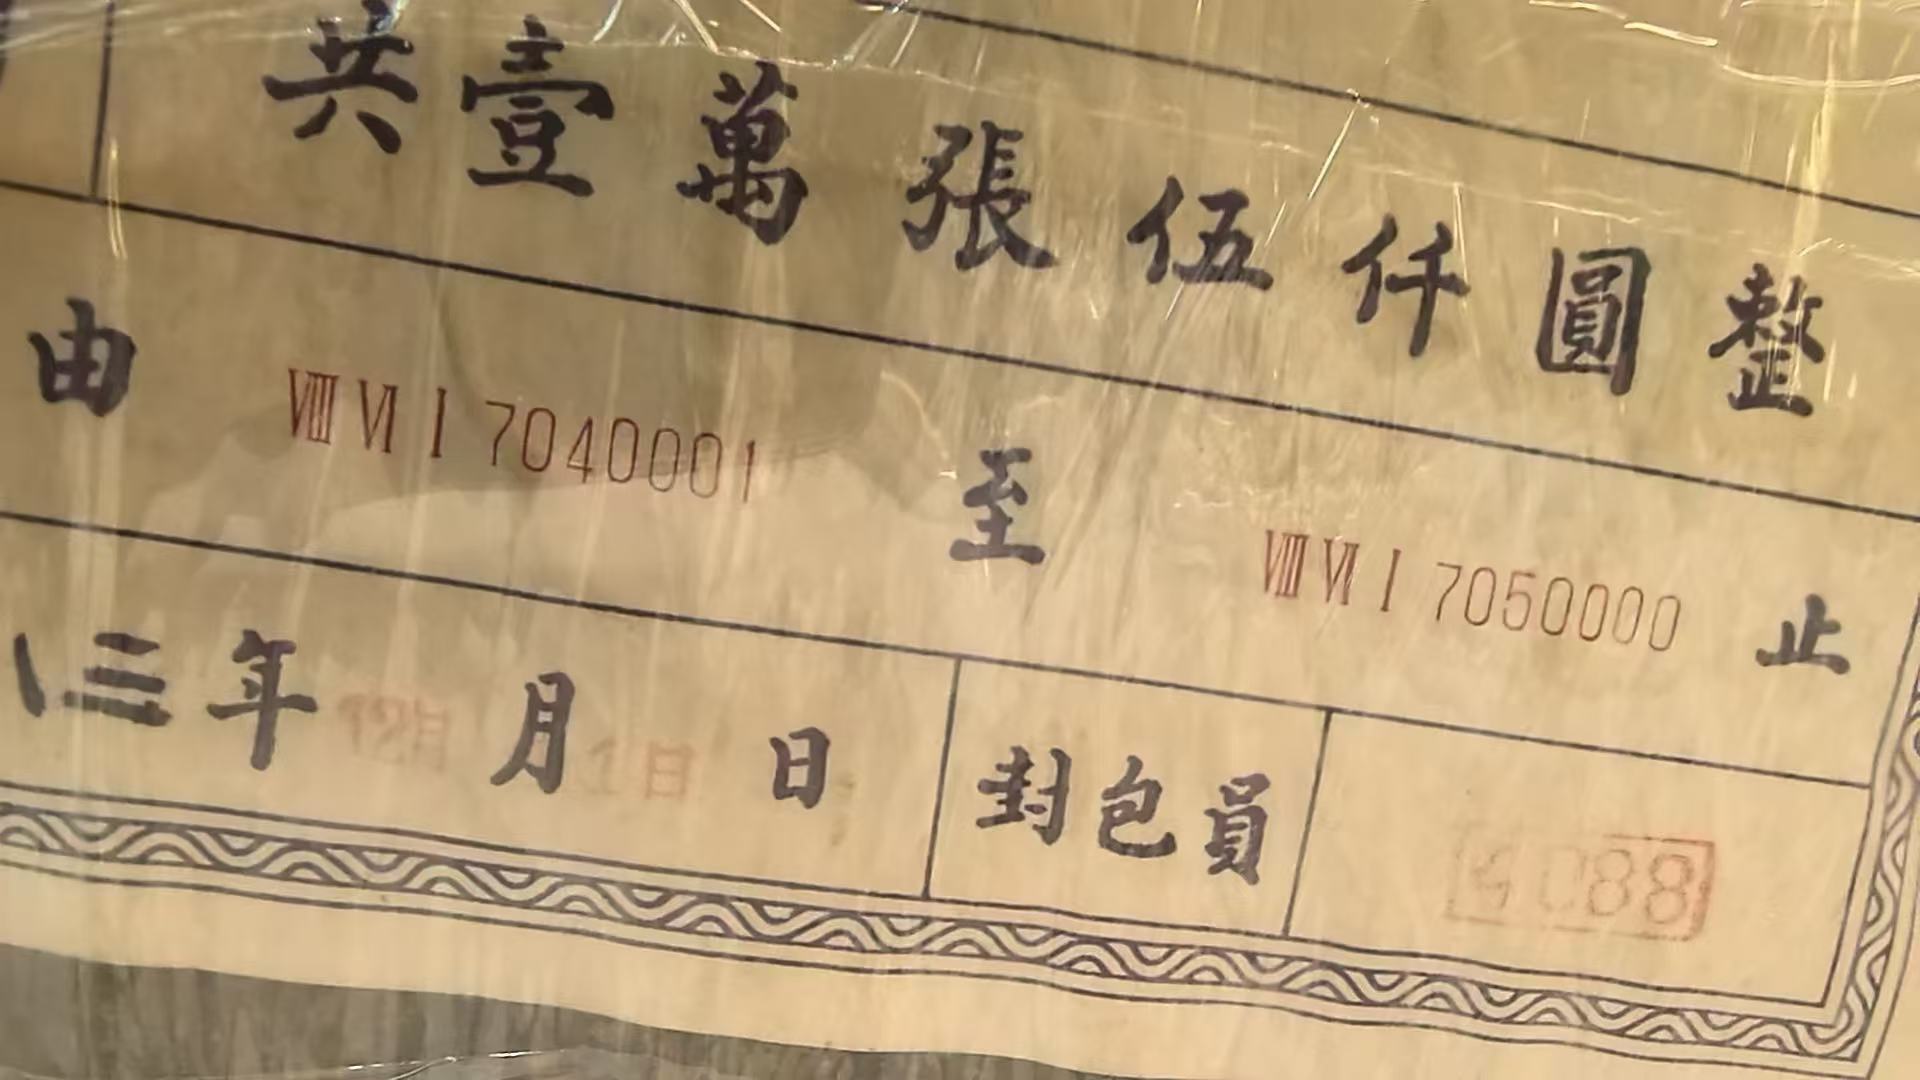 共壹萬張伍仟圓整
由 ⅧⅥⅠ7040001 至 ⅧⅥⅠ7050000 止
三年 12月 月 1日 日 封包員 4088